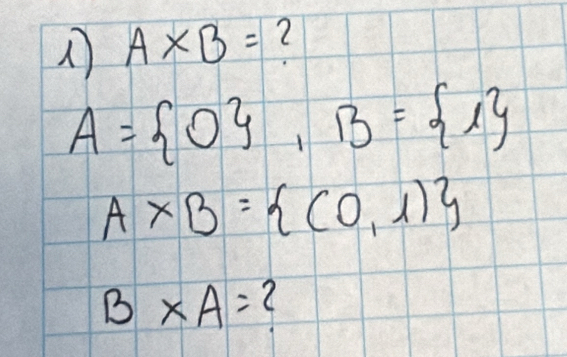 1) A×B=?
A={0}, B={1}
A×B={(0,1)}
B×A=?